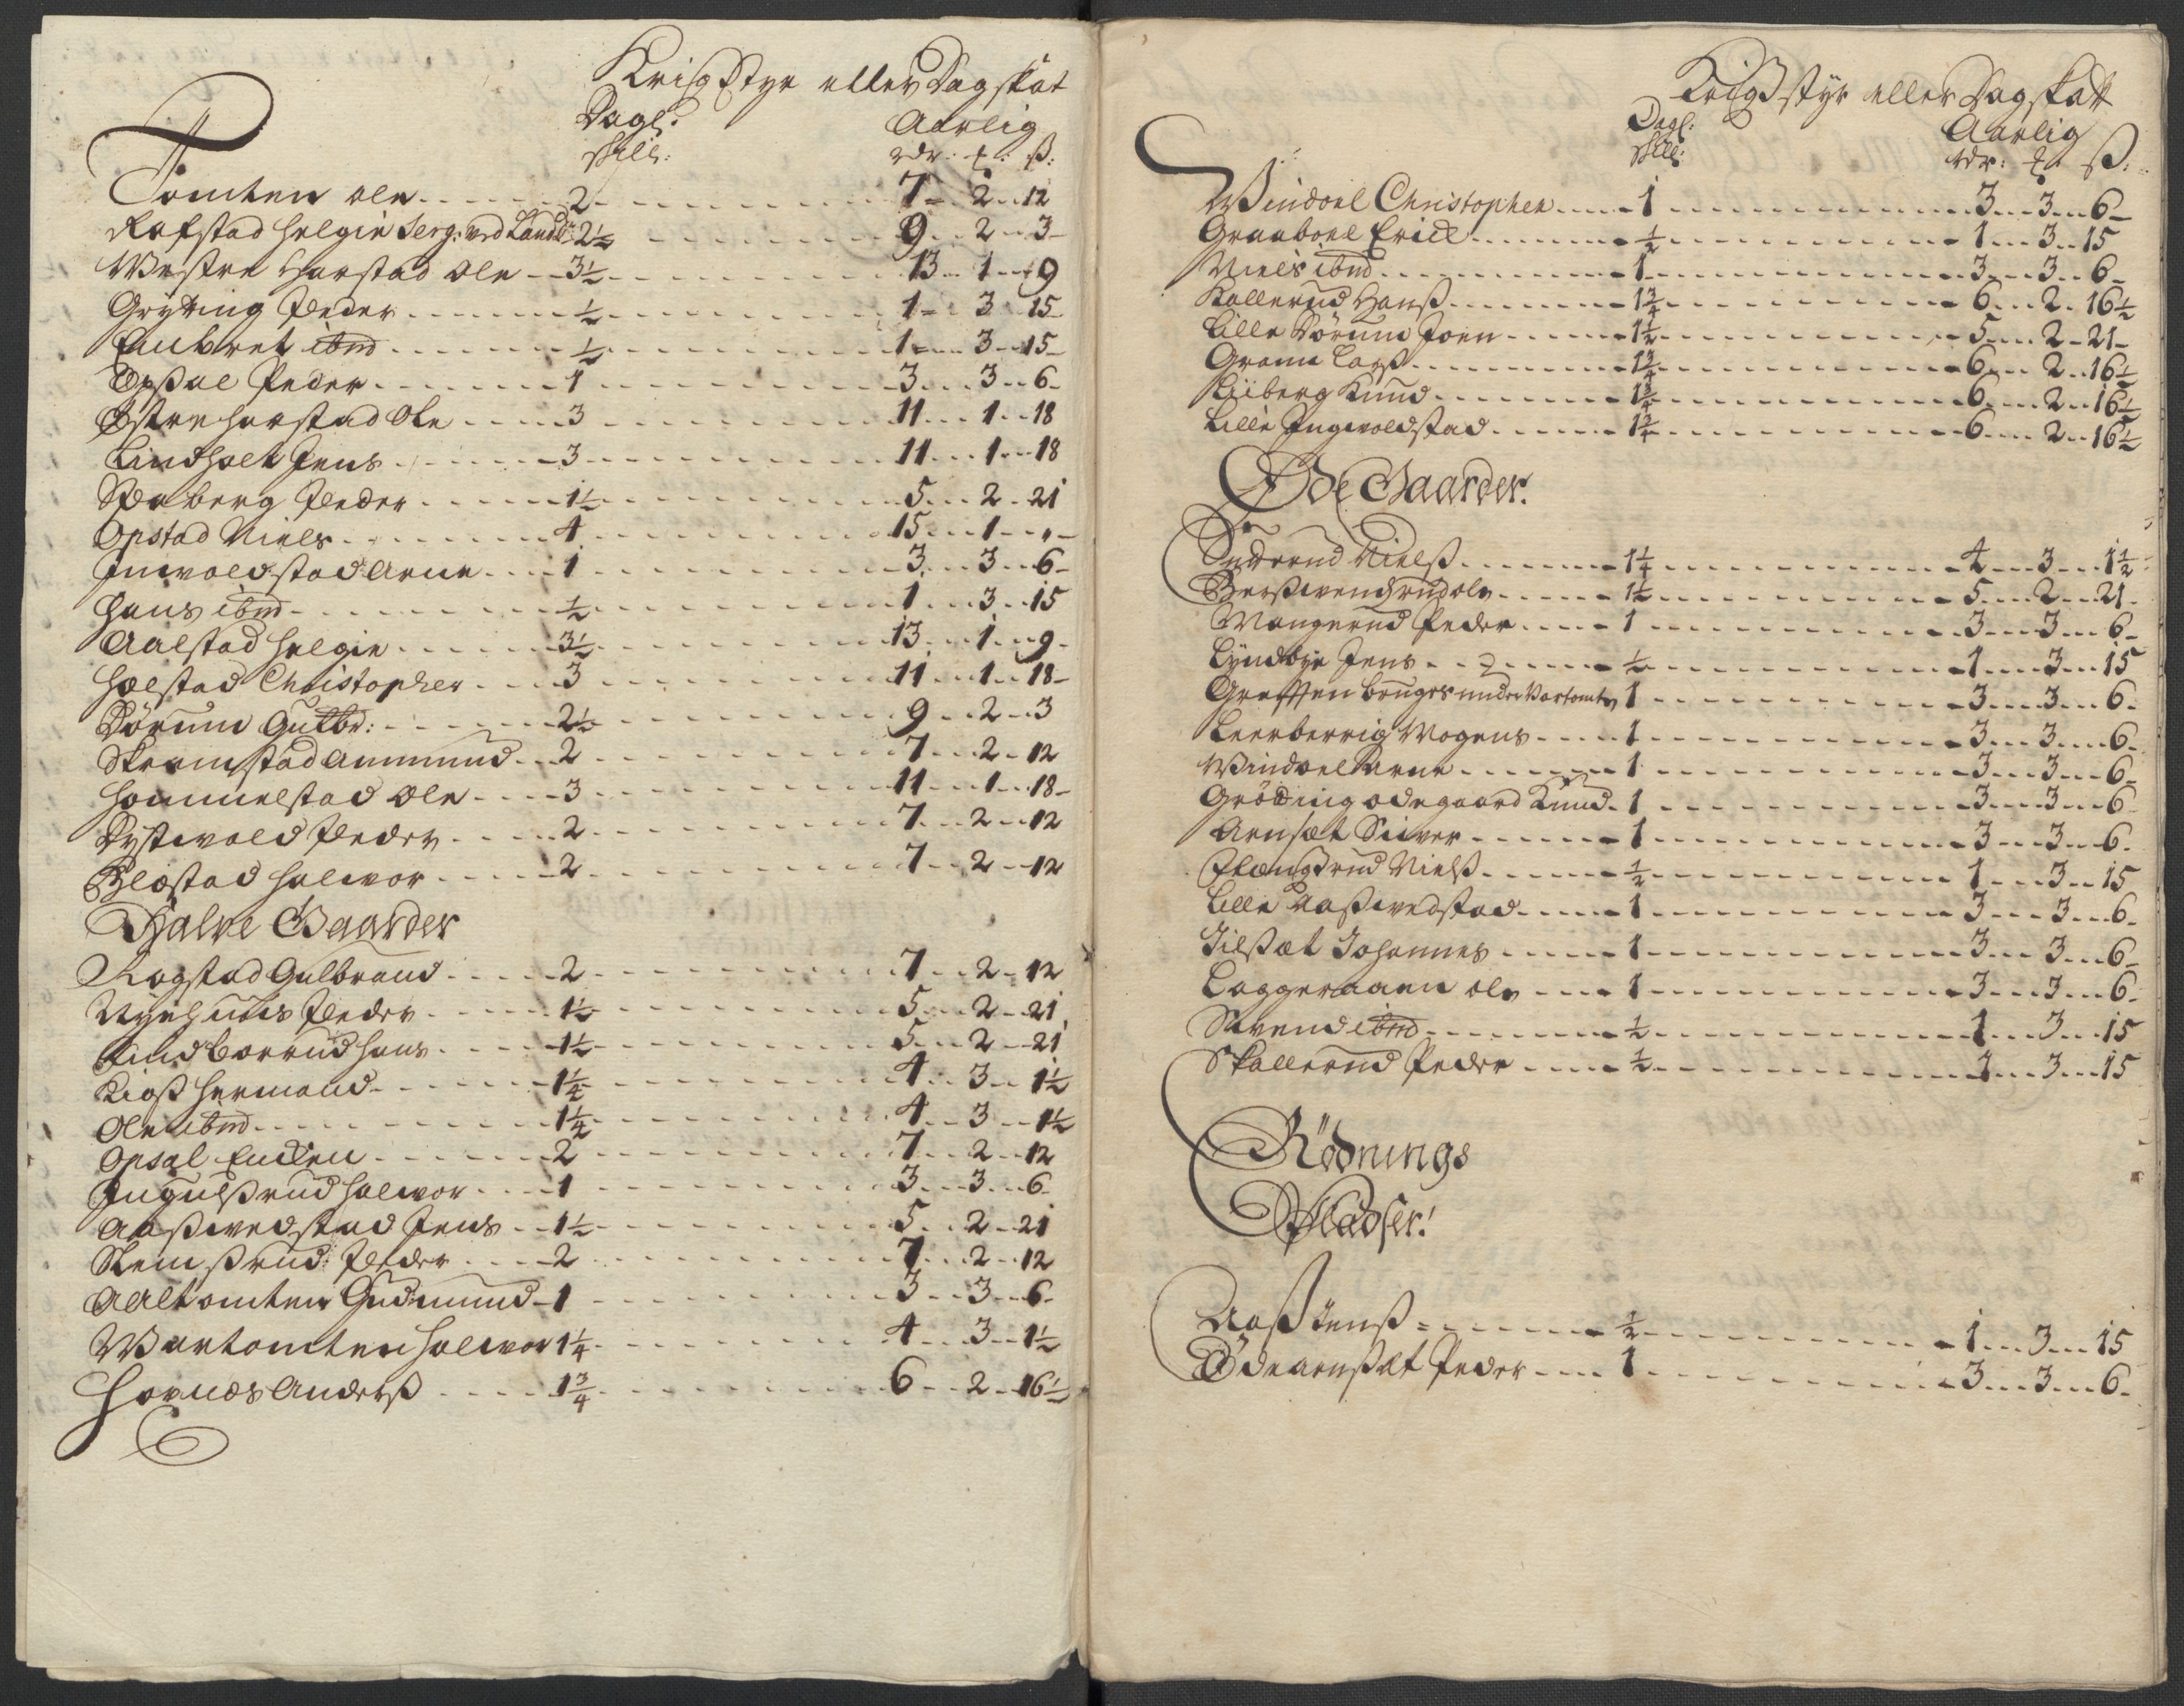 Krigs Styr eller Dagskat
Dagl: Aarlig
skill: rdr: ƒ: ß:
Tomten Ole 2 7 2 12
Rafstad Helgie Serg: ved Landt 2½ 9 2 3
Westre Harstad Ole 3½ 13 1 9
Gryting Peder ½ 1 3 15
Embret ibm ½ 1 3 15
Opsal Peder 1 3 3 6
Østre Harstad Ole 3 11 1 18
Lindholt Jens 3 11 1 18
Staberg Peder 1½ 5 2 21
Opstad Niels 4 15 1 "
Inwoldstad Arne 1 3 3 6
Hans ibm ½ 1 3 15
Aalstad Helgie 3½ 13 1 9
Holstad Christopher 3 11 1 18
Dörum Gulbr: 2½ 9 2 3
Skramstad Ammund 2 7 2 12
Hommelstad Ole 3 11 1 18
Tystwold Peder 2 7 2 12
Blæstad Halwor 2 7 2 12
Halve Gaarder
Rogstad Gulbrand 2 7 2 12
Nyehuus Peder 1½ 5 2 21
Lindberrud Hans 1½ 5 2 21
Kioß Hermand 1¼ 4 3 1½
Ole ibm 1¼ 4 3 1½
Opsal Enken 2 7 2 12
Ingulßrud Halwor 1 3 3 6
Aaßwedstad Jens 1½ 5 2 21
Stemßrud Peder 2 7 2 12
Aaltomten Gudmund 1 3 3 6
Wartomten Halwor 1¼ 4 3 1½
Hornæs Anderß 1¾ 6 2 16½
Krigs Styr eller Dagskatt
Dagl: Aarlig
skill: rdr: ƒ ß:
Windoel Christopher 1 3 3 6
Graaboel Erick ½ 1 3 15
Niels ibm 1 3 3 6
Kallerud Hanß 1¾ 6 2 16½
Lille Dörum Joen 1½ 5 2 21
Gram Larß 1¾ 6 2 16½
Kiiberg Knud 1¾ 6 2 16½
Lille Ingwoldstad 1¾ 6 2 16½
Øde Gaarder.
Nielß 1¼ 4 3 1½
Ole 1½ 5 2 21
Mangerud Peder 1 3 3 6
Lyndbye Jens ½ 1 3 15
Greften bruges under Vartomten 1 3 3 6
Leerberrig Mogens 1 3 3 6
Windoel Arne 1 3 3 6
Gröting ødegaard Knud 1 3 3 6
Arnsæt Siver 1 3 3 6
Flangsrud Nielß ½ 1 3 15
Lille Aaßwedstad 1 3 3 6
Silßæt Johannes 1 3 3 6
Laggeraaen Ole 1 3 3 6
Svend ibm ½ 1 3 15
Skallerud Peder ½ 1 3 15
Rödnings
Pladser!
Aaß Jenß ½ 1 3 15
Ødearnßæt Peder 1 3 3 6